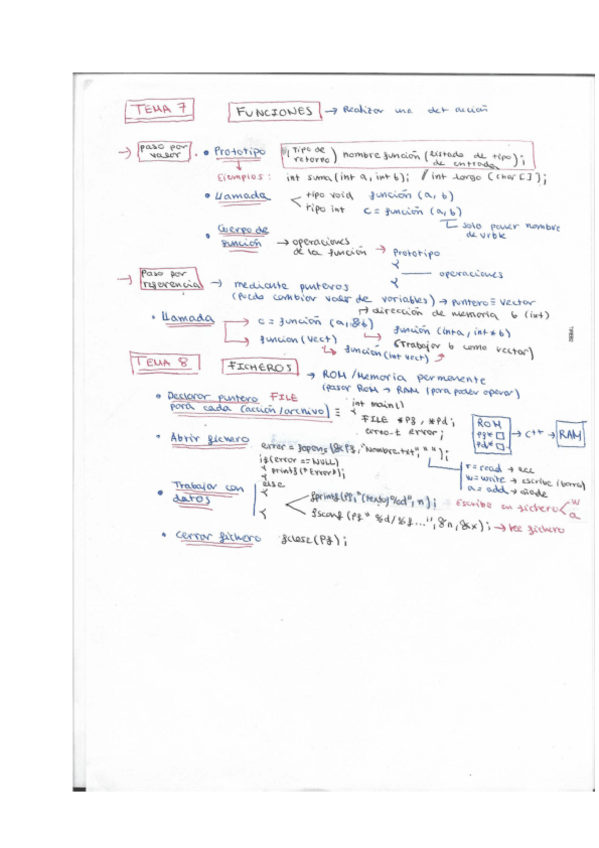 TEMA 7 FUNCIONES → Realizar una det acción
→ paso por valor • Prototipo (Tipo de retorno) nombre función (listado de tipo de entrada);
Ejemplos: int suma (int a, int b); // int largo (char[]);
• Llamada tipo void función (a, b)
tipo int c = función (a, b)
solo poner nombre de vrble
• Cuerpo de función → operaciones de la función → Prototipo
{
operaciones
}
→ Paso por referencia → mediante punteros
(puedo cambiar valor de variables) → puntero ≡ vector
→ dirección de memoria b (int)
• Llamada → c = función (a, &b) → función (int a, int * b)
(Trabajar b como vector)
→ función (vect) → función (int vect)
TEMA 8 FICHEROS → ROM / Memoria permanente
(pasar ROM → RAM (para poder operar)
• Declarar puntero FILE para cada (acción/archivo) ≡ int main()
{
FILE *pf, *pd;
errno_t error;
ROM → C++ → RAM
pf*
pd*
• Abrir fichero error = fopens (&pf, "Nombre.txt", " ");
if (error == NULL)
{ printf ("Error");
r = read → lee
w = write → escribe (borra)
a = add → añade
else
• Trabajar con datos { fprintf (pf, "(texto)%d", n); → Escribe en fichero w a
} fscanf (pf " %d/%f...", &n, &x); → lee fichero
• Cerrar fichero fclose (pf);